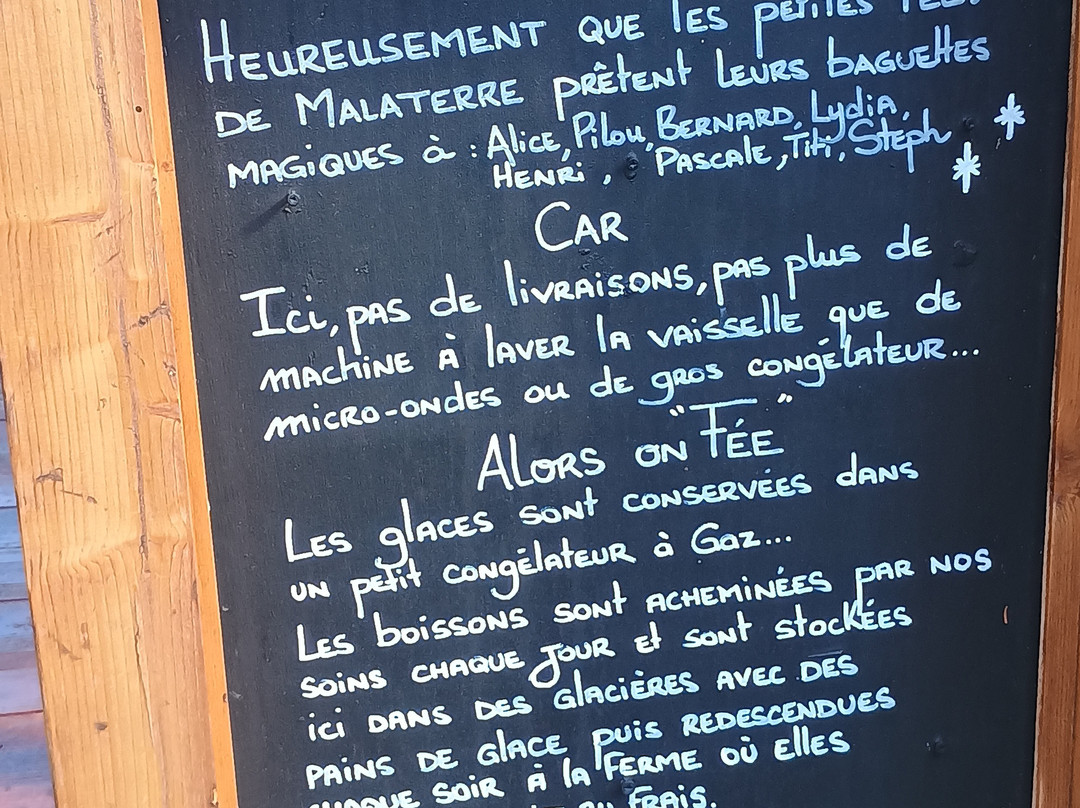 HEUREUSEMENT QUE lES pEtitES
DE MALATERRE pRÊtENt LEURS bAGUEttES
MAGiQUES à : Alice, Pilou, BERNARD, Lydia,
HENRi, PASCALE, Titi, Stéph
CAR
Ici, pAS de livRAiSONS, pAS plus de
MAchiNE À lAVER lA VAiSSElle que de
MiCRO-ONdES ou de gros congélateur...
Alors on "FÉE"
LES glACES SONt CONSERVÉES dANS
UN pEtit CONgélAtEUR à GAz...
LES boissons sont ACHEMiNÉES pAR NOS
SOiNS CHAQUE JOUR Et SONt StockÉES
ici DANS DES GlACiÈRES AVEC DES
pAiNS DE GlACE puis REDESCENDUES
CHAQUE SOiR À lA FERME OÙ EllES
AU FRAiS.